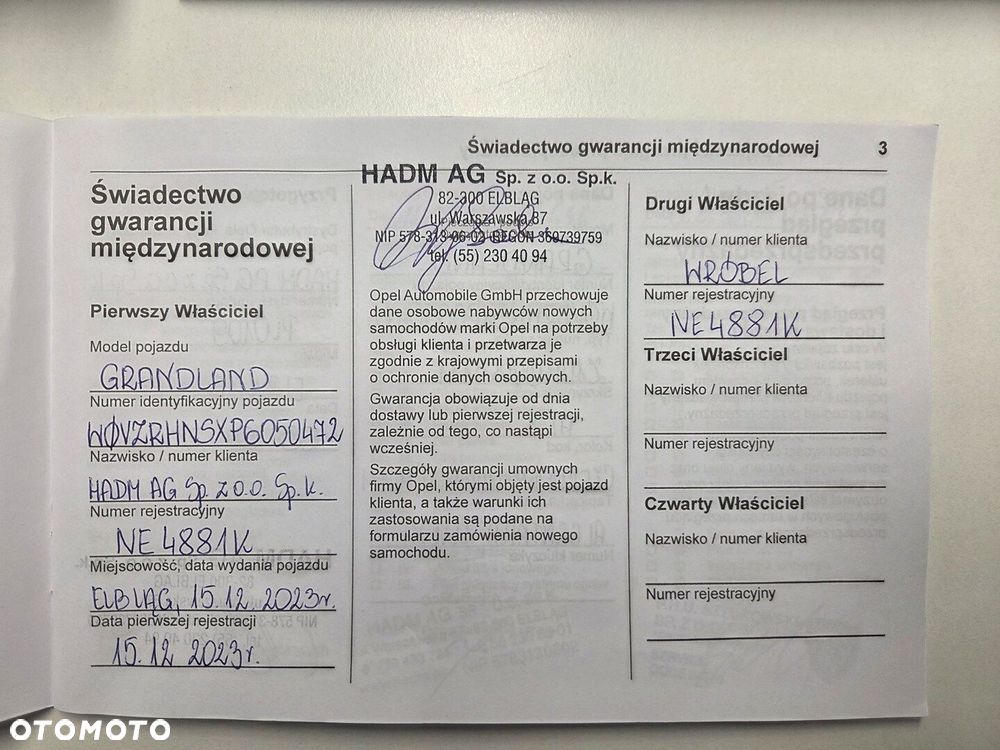 Świadectwo gwarancji międzynarodowej 3
Świadectwo
gwarancji
międzynarodowej
Pierwszy Właściciel
Model pojazdu
GRANDLAND
Numer identyfikacyjny pojazdu
WØVZRHNSXP6050472
Nazwisko / numer klienta
HADM AG Sp. z o.o. Sp. k.
Numer rejestracyjny
NE4881K
Miejscowość, data wydania pojazdu
ELBLĄG, 15.12.2023r.
Data pierwszej rejestracji
15.12 2023r.
HADM AG Sp. z o.o. Sp.k.
82-300 ELBLĄG
ul. Warszawska 87
NIP 578-313-06-02 REGON 369739759
tel. (55) 230 40 94
Opel Automobile GmbH przechowuje
dane osobowe nabywców nowych
samochodów marki Opel na potrzeby
obsługi klienta i przetwarza je
zgodnie z krajowymi przepisami
o ochronie danych osobowych.
Gwarancja obowiązuje od dnia
dostawy lub pierwszej rejestracji,
zależnie od tego, co nastąpi
wcześniej.
Szczegóły gwarancji umownych
firmy Opel, którymi objęty jest pojazd
klienta, a także warunki ich
zastosowania są podane na
formularzu zamówienia nowego
samochodu.
Drugi Właściciel
Nazwisko / numer klienta
WRÓBEL
Numer rejestracyjny
NE4881K
Trzeci Właściciel
Nazwisko / numer klienta
Numer rejestracyjny
Czwarty Właściciel
Nazwisko / numer klienta
Numer rejestracyjny
OTOMOTO